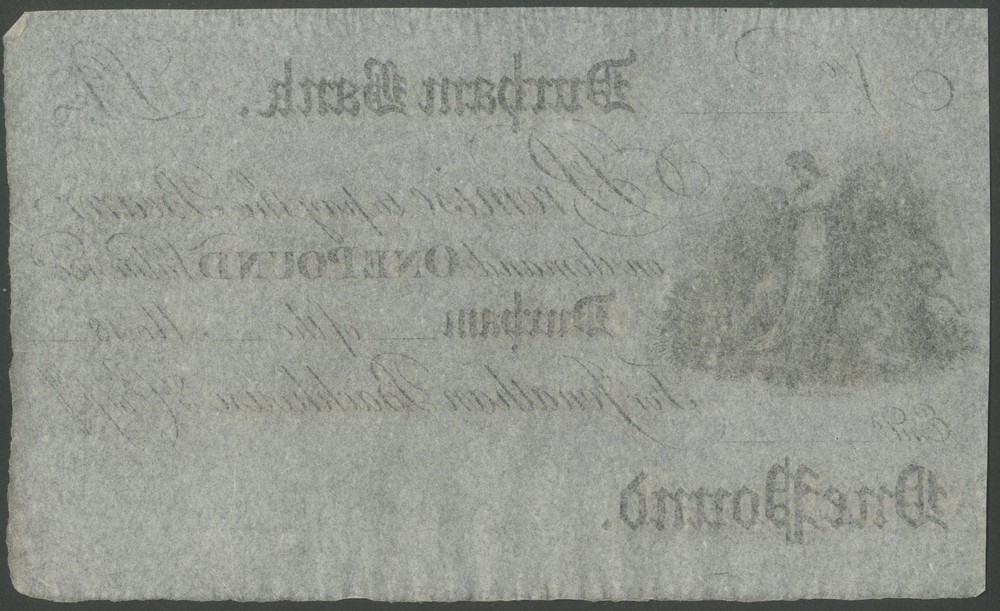 No Durham Bank. No
I Promise to pay the Bearer
on demand ONE POUND Value recd
Durham of the 18
For Jonathan Backhouse & Compy
Entd
One Pound.